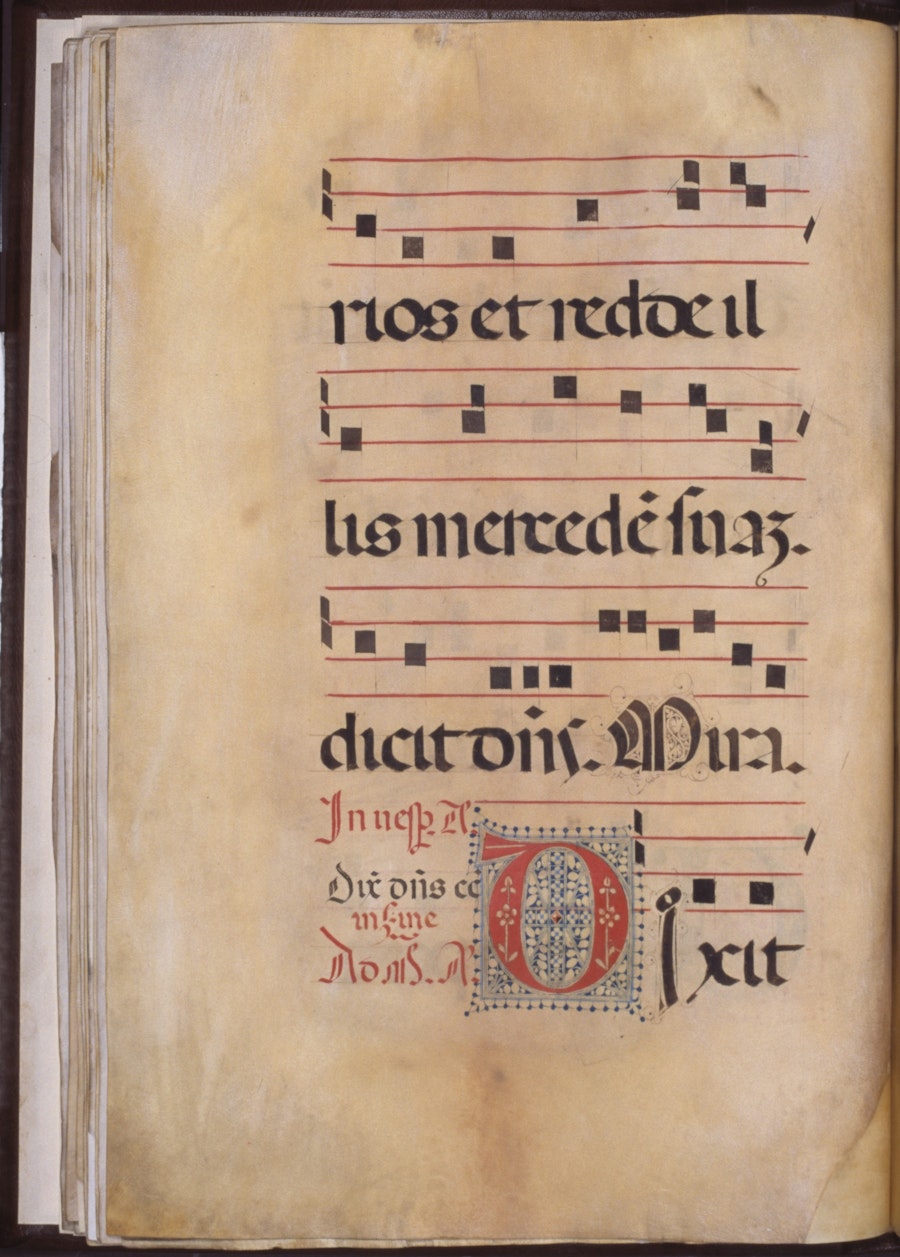 rios et redde il
lis mercedē suaz.
dicit dn̄s. Mira.
In uesp̄ A.
Dix̄ dn̄s
in fine
Ad
DIxit